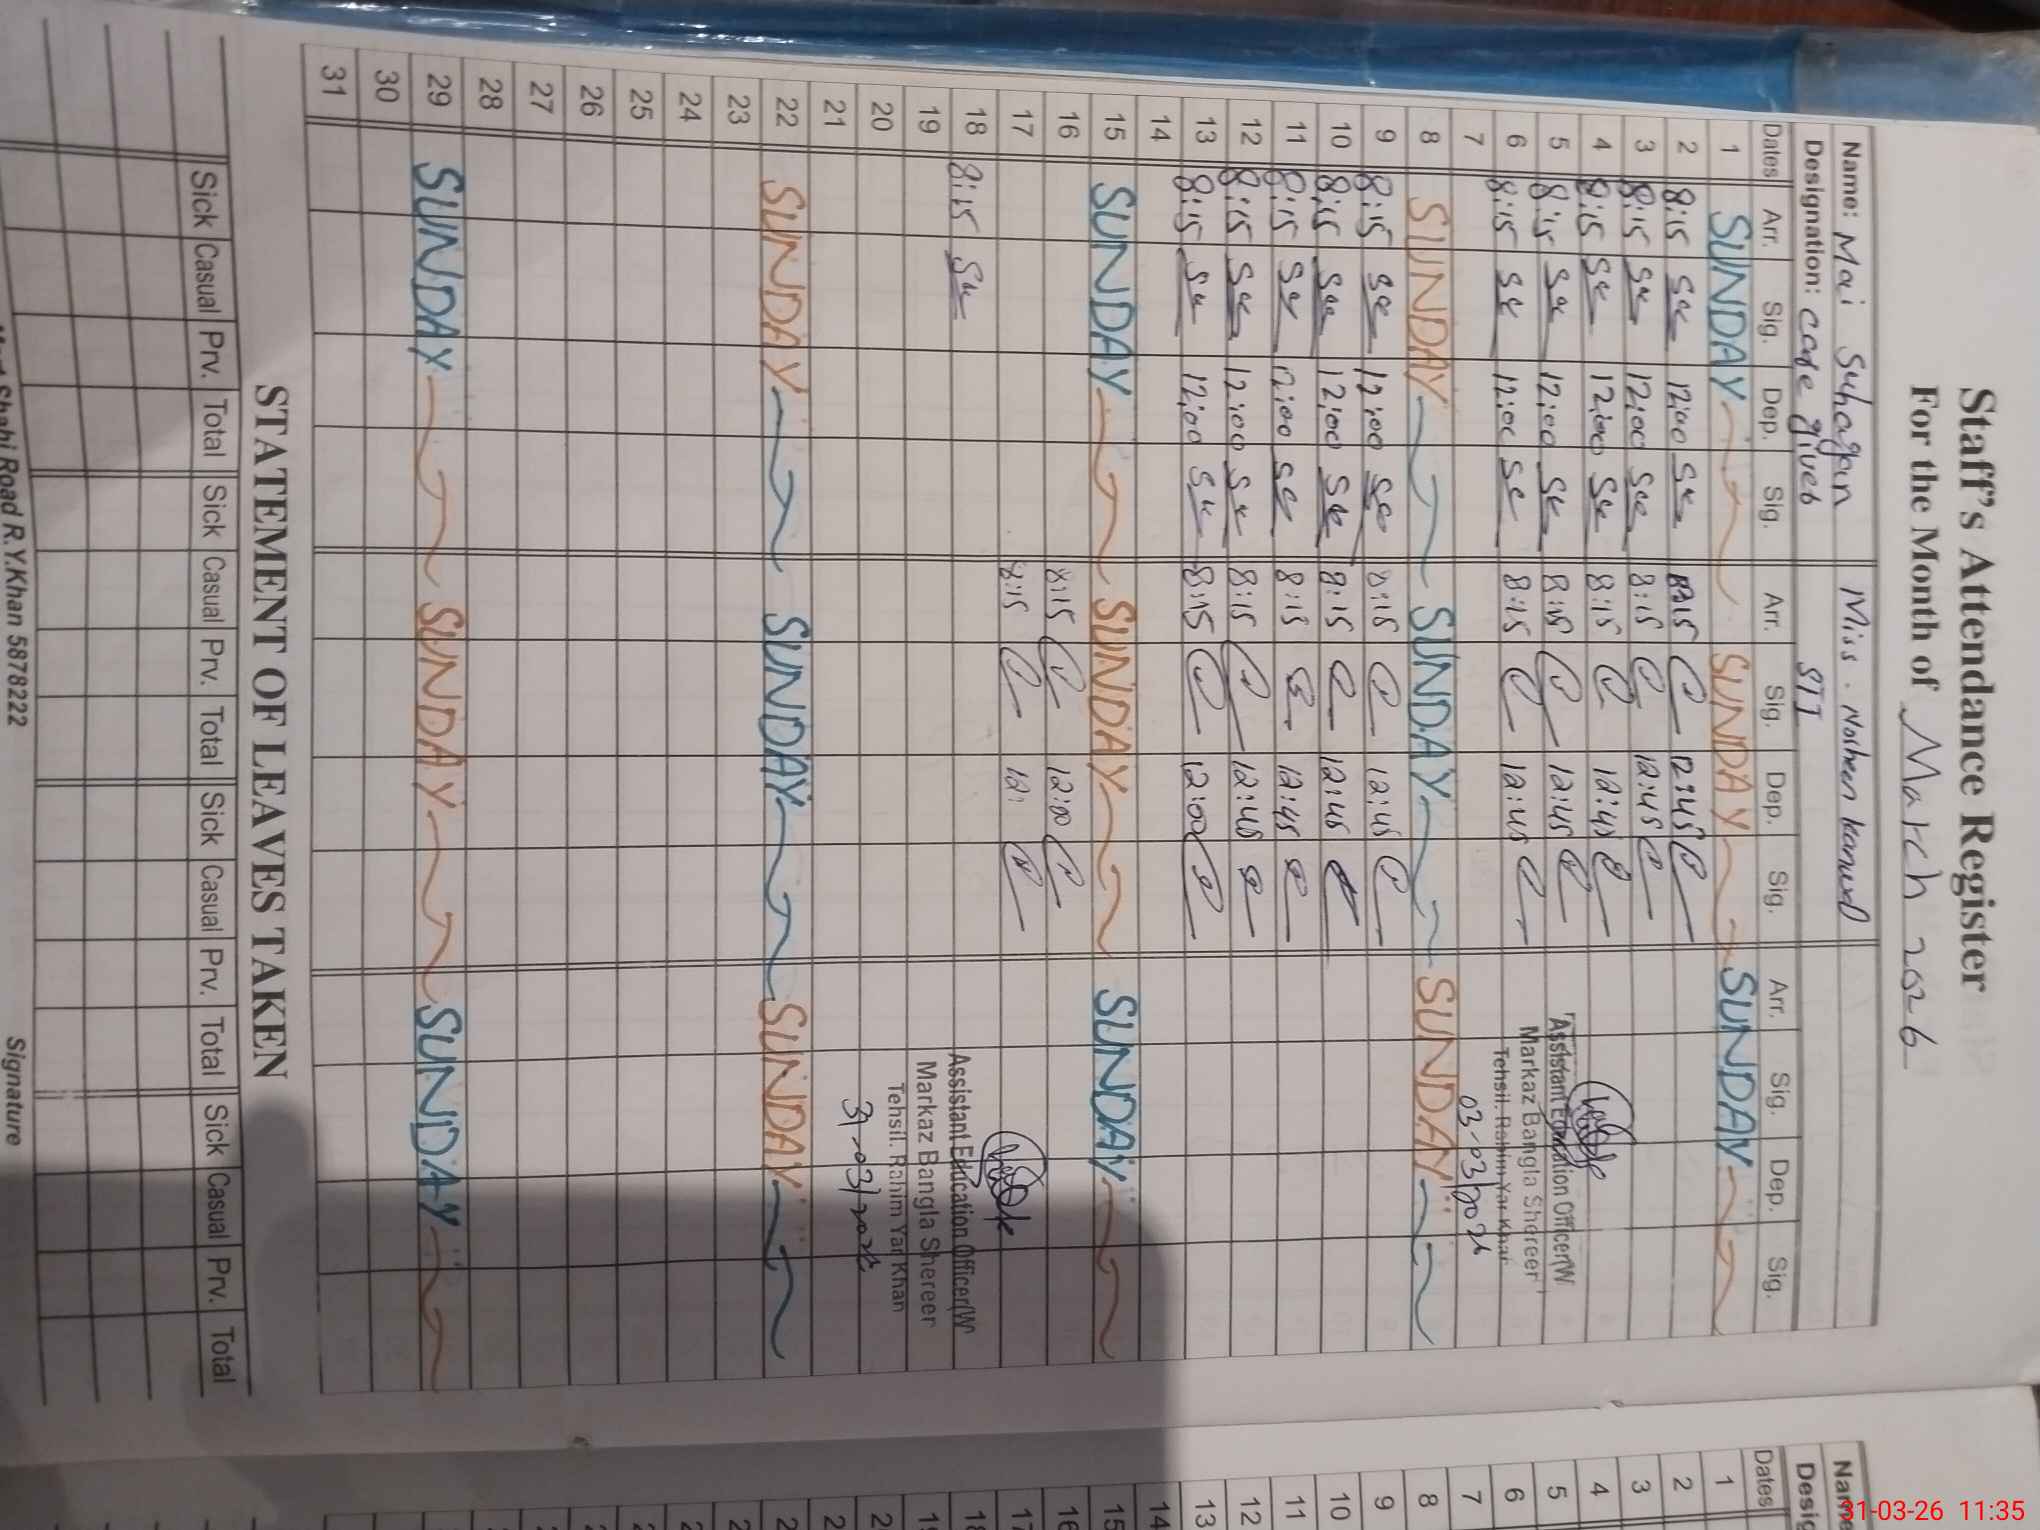 Staff's Attendance Register
For the Month of March 2026
Name: Mai Suhagan Miss. Nosheen kanwal
Designation: care giver STI
Dates Arr. Sig. Dep. Sig. Arr. Sig. Dep. Sig. Arr. Sig. Dep. Sig.
1 SUNDAY SUNDAY SUNDAY
2 8:15 12:00 8:15 12:45
3 8:15 12:00 8:15 12:45
4 8:15 12:00 8:15 12:45
5 8:15 12:00 8:15 12:45 Assistant Education Officer(W
6 8:15 12:00 8:15 12:45 Markaz Bangla Shereen
Tehsil. Rahim Yar Khan
7 03-03/2026
8 SUNDAY SUNDAY SUNDAY
9 8:15 12:00 8:15 12:45
10 8:15 12:00 8:15 12:45
11 8:15 12:00 8:15 12:45
12 8:15 12:00 8:15 12:45
13 8:15 12:00 8:15 12:00
14
15 SUNDAY SUNDAY SUNDAY
16 8:15 12:00
17 8:15 12:
18 8:15 Assistant Education Officer(W
19 Markaz Bangla Shereer
20 Tehsil. Rahim Yar Khan
21 31-03/2026
22 SUNDAY SUNDAY SUNDAY
23
24
25
26
27
28
29 SUNDAY SUNDAY SUNDAY
30
31
STATEMENT OF LEAVES TAKEN
Sick Casual Prv. Total Sick Casual Prv. Total Sick Casual Prv. Total Sick Casual Prv. Total
Shahi Road R.Y.Khan 5878222 Signature
Name
Desig
Dates
1
2
3
4
5
6
7
8
9
10
11
12
13
14
15
16
31-03-26 11:35